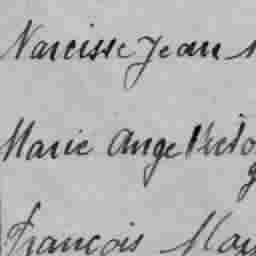 Narcisse Jean
Marie Ange Victo
François